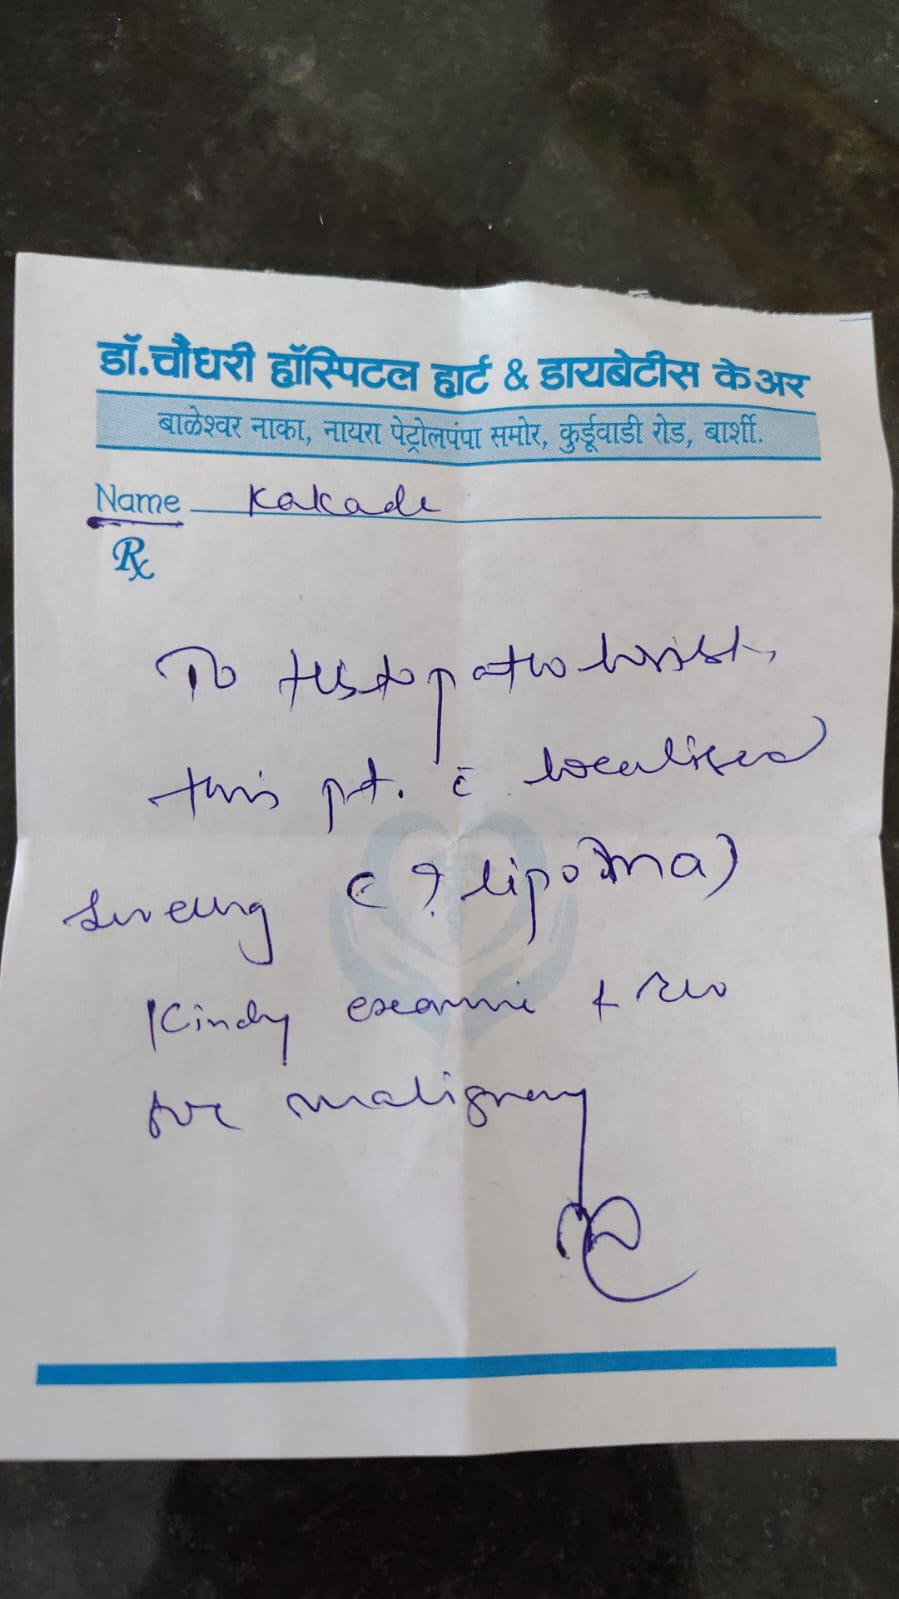 डॉ.चौधरी हॉस्पिटल हार्ट & डायबेटीस केअर
बाळेश्वर नाका, नायरा पेट्रोलपंपा समोर, कुर्डूवाडी रोड, बार्शी.
Name Kakade
Rx
To Histopathologist,
this pt. c̄ localised
(? lipoma)
Kindy examine +
malignancy